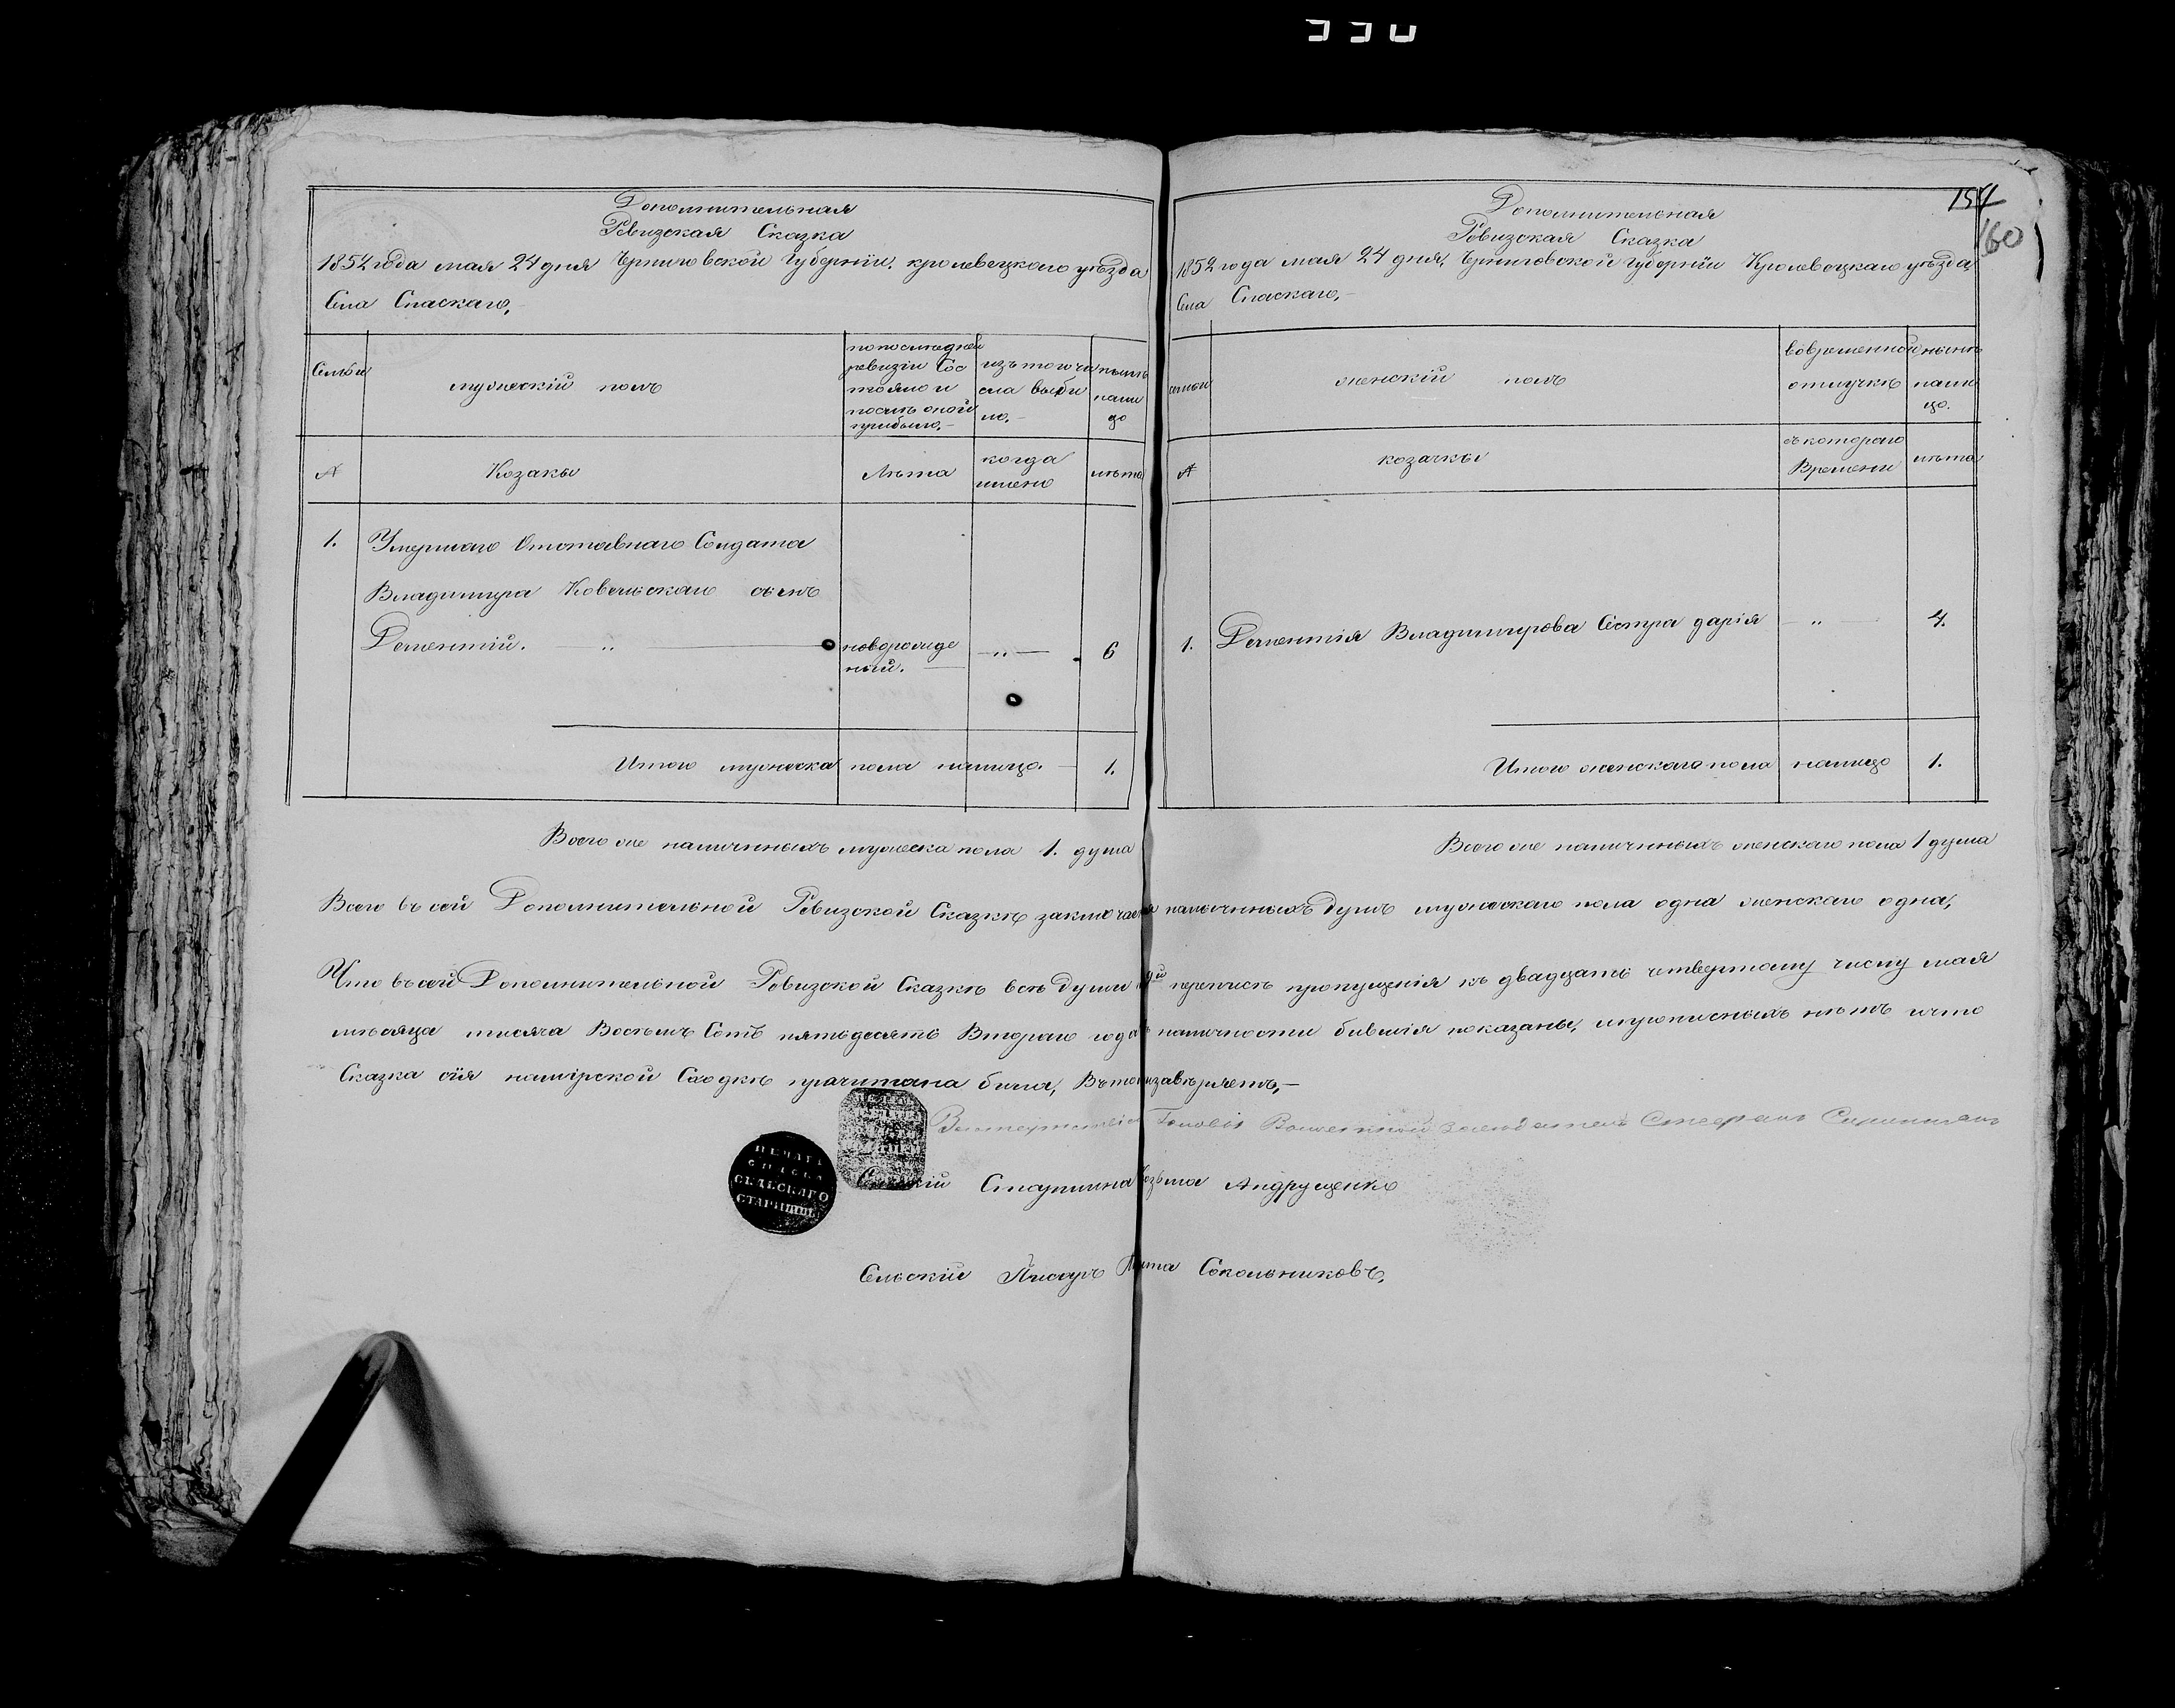 550
Дополнительная
Ревизская Сказка
1852 года мая 24 дня Черниговской Губернїи, кролевецкого уѣзда
Села Спаскаго,
Семьи
мужескїй полъ
попоследней ревизїи Сос тояло и послѣ оной прибыло.
изътого чи сла выбы ло.
нынѣ нали цо
№
Козаки
Лѣта
когда имено
лѣта
1. Умершаго Отставнаго Солдата
Владимира Ковельскаго сынъ
Дементїй. новорожде ный. 6
Итого мужеска пола налицо. 1.
Всего же наличныхъ мужеска пола 1. душа
154
160
Дополнительная
Ревизская Сказка
1852 года мая 24 дня, Черниговской губернїи Кролевецкаго уѣзда,
Села Спаскаго,
семьи
женскїй полъ
вовременной отлучкѣ
нынѣ нали цо.
№
козачки
съ котораго Времени
лѣта
1. Дементїя Владимирова Сестра дарїя 4.
Итого женскаго пола налицо 1.
Всего же наличныхъ женскаго пола 1 душа
Всего въ сей Дополнительной Ревизской Сказкѣ заключается наличныхъ душъ мужескаго пола одна женскаго одна,
Что въ сей Дополнительной Ревизской Сказкѣ всѣ души перепись пропущенїя къ двадцать четвертому числу мая
мѣсяца тисяча Восемь Сотъ пятьдесятъ Второго года наличности бившїя показаны, и прописныхъ нѣтъ ичто
Сказка сїя намїрской Сходкѣ прачитана била, Вътом изавѣряетъ,
Голова Степанъ
ПЕЧАТЬ
СПАСКА
СЕЛЬСКАГО
СТАРШИНЫ
Сельскїй Старшина Козьма Андрущенко
Сельскїй Писарь Сокольниковъ,